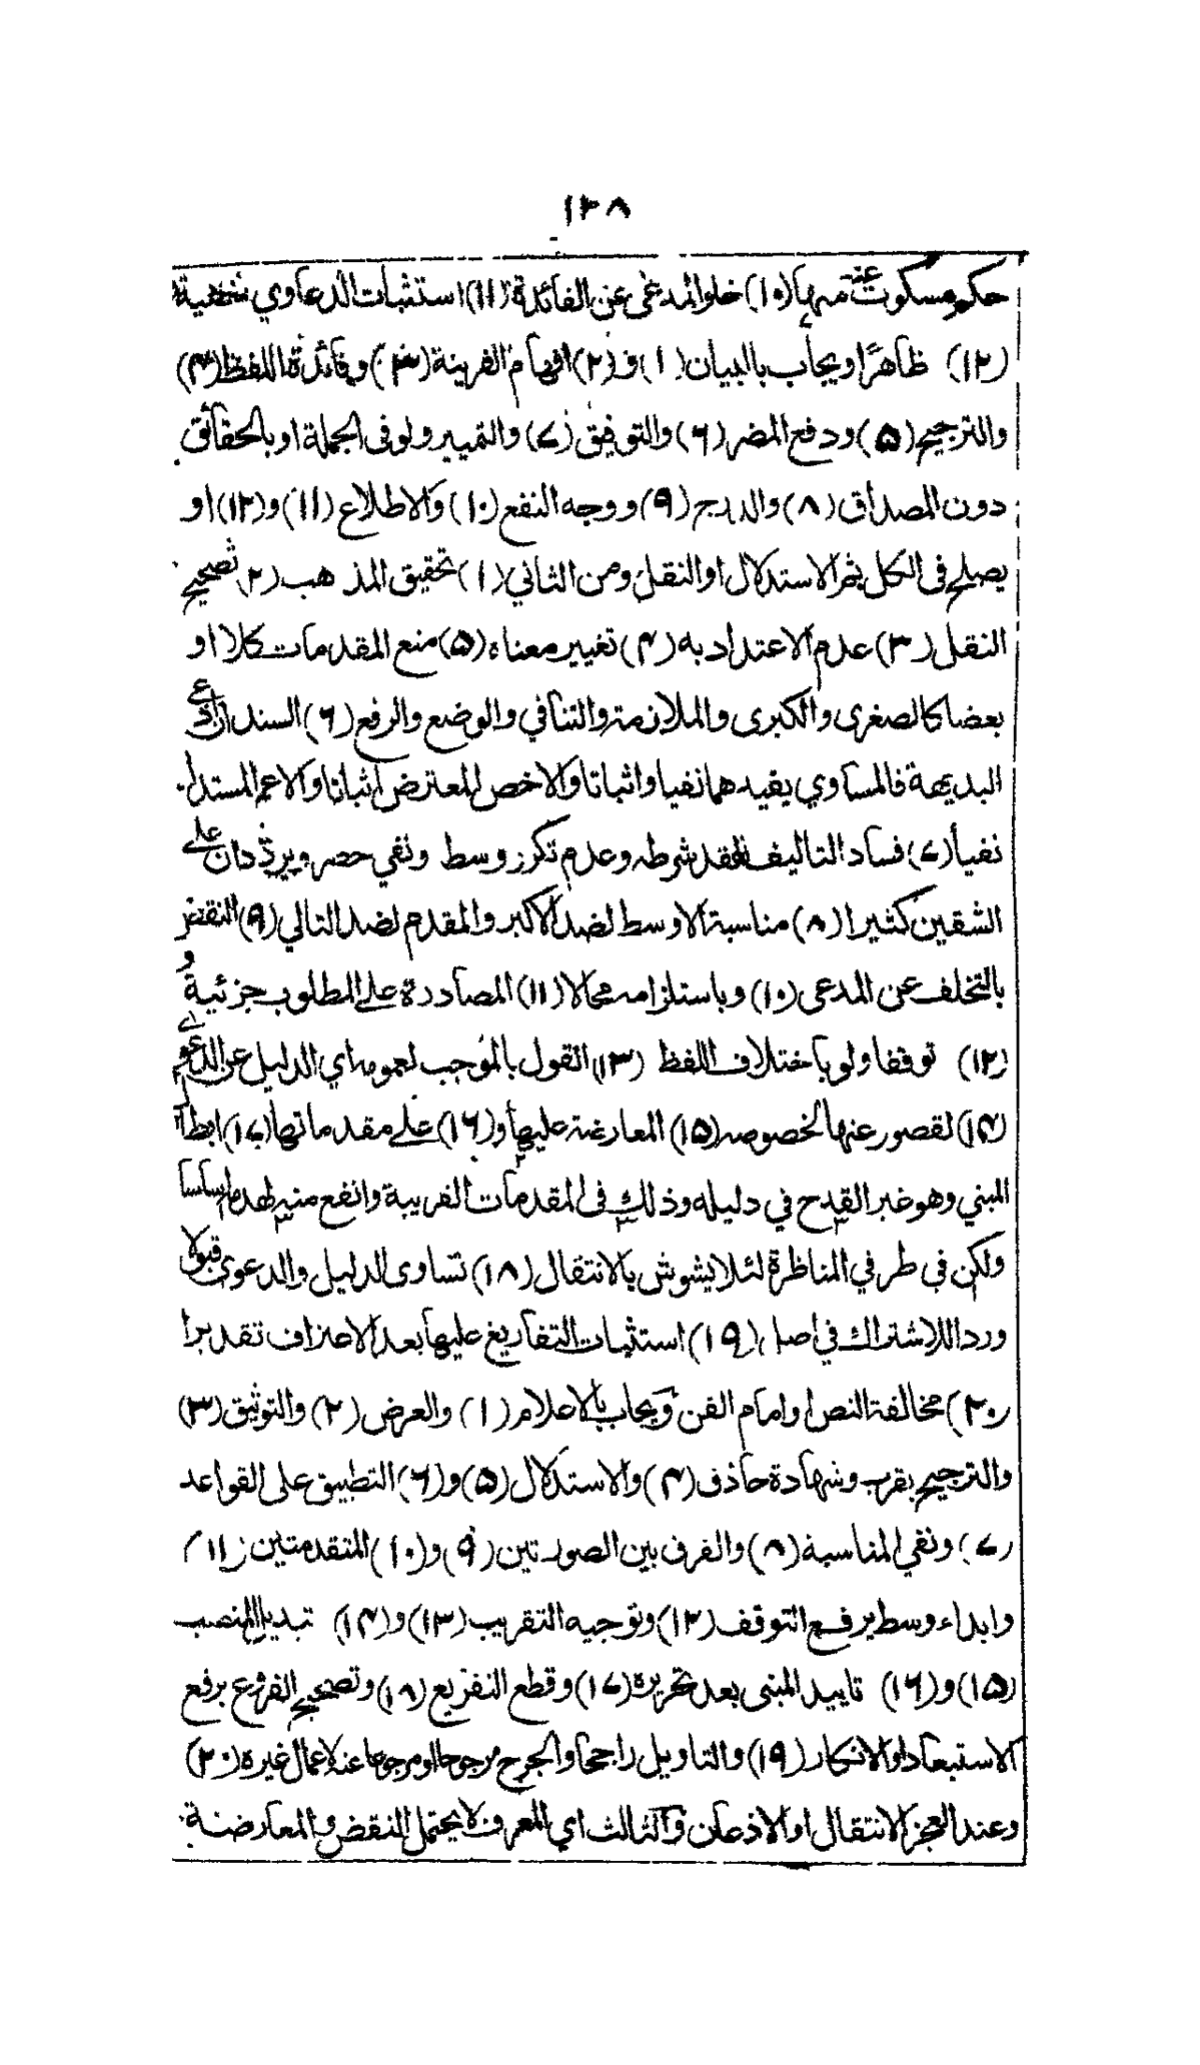 ١٢٨
حكم مسكوت عنه مبهما (١٠) خلو المدعى عن الفائدة (١١) استثبات الدعاوي شخصية
(١٢) ظاهرًا ويجاب بالبيان (١) و (٢) افهام القرينة (٣) وفائدة اللفظ (٤)
والترجيح (٥) ودفع المضر (٦) والتوفيق (٧) والتمييز ولو فى الجملة او بالحقائق
دون المصداق (٨) والدرج (٩) ووجه النفع (١٠) والاطلاع (١١) و (١٢) او
يصلح فى الكل ثم الاستدلال او النقل ومن الثاني (١) تحقيق المذهب (٢) تصحيح
النقل (٣) عدم الاعتداد به (٤) تغيير معناه (٥) منع المقدمات كلا او
بعضا كالصغرى والكبرى والملازمة والتنافي والوضع والرفع (٦) السند ادعى
البديهة فالمساوي يفيدهما نفيا واثباتا والاخص للمعترض اثباتا والاعم للمستدل
نفيا (٧) فساد التاليف لفقد شرطه وعدم تكرر وسط ونفي حصر ويردان على
الشقين كثيرا (٨) مناسبة الاوسط لضد الاكبر والمقدم لضد التالي (٩) النقض
بالتخلف عن المدعى (١٠) وباستلزامه محالا (١١) المصادرة على المطلوب جزئية و
(١٢) توقفا ولو باختلاف اللفظ (١٣) القول بالموجب لعمومه اي الدليل عن الدعوى
(١٤) لقصور عنها لخصوصه (١٥) المعارضة عليها و (١٦) على مقدماتها (١٧) ابطال
المبني وهو غير القدح في دليله وذلك فى المقدمات القريبة وانفع منه لهدم اساسا
ولكن في طرفي المناظرة لئلا يشوش بالانتقال (١٨) تساوى الدليل والدعوى قبولا
وردا للاشتراك في اصل (١٩) استثبات التفاريع عليها بعد الاعتراف تقديرا
(٢٠) مخالفة النص او امام الفن ويجاب بالاعلام (١) والعرض (٢) والتوثيق (٣)
والترجيح بقرب وشهادة حاذق (٤) والاستدلال (٥) و (٦) التطبيق على القواعد
(٧) ونفي المناسبة (٨) والفرق بين الصورتين (٩) و (١٠) المتقدمتين (١١)
وابداء وسط يرفع التوقف (١٢) وتوجيه التقريب (١٣) و (١٤) تبديل المنصب
(١٥) و (١٦) تاييد المبنى بعد تحريره (١٧) وقطع التفريع (١٨) وتصحيح الفروع برفع
الاستبعاد او الانكار (١٩) والتاويل راجحا والجرح مرجوحا او مرجوعا عنه لاعمال غيره (٢٠)
وعند العجز الانتقال او الاذعان والثالث اي المعرف لا يحتمل النقض والمعارضة